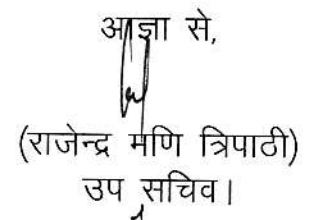 आज्ञा से,
(राजेन्द्र मणि त्रिपाठी)
उप सचिव।